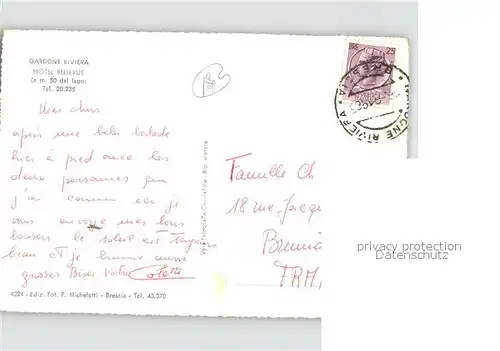 GARDONE RIVIERA
HOTEL BELLEVUE
(a m. 50 dal lago)
Tel. 20.235
Mes chers
après une belle balade
hier à pied avec les
deux personnes que
j'ai connu ici je
vous envoye mes bons
baisers le soleil est toujours
beau et je
grosses Bises Votre Colette
4224 - Ediz. Fot. F. Micheletti - Brescia - Tel. 43.070
Vera fotografia
Famille Ch
18 rue Jacqu
privacy protection
Datenschutz